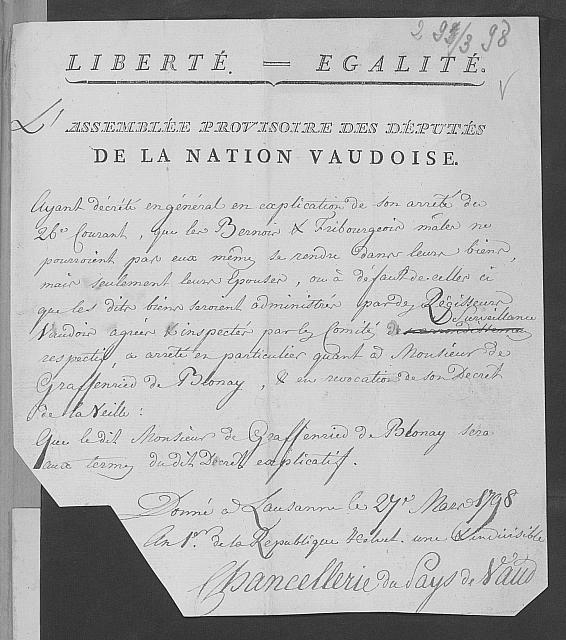 LIBERTÉ. = EGALITÉ.
L'ASSEMBLÉE PROVISOIRE DES DÉPUTÉS
DE LA NATION VAUDOISE.
Ayant décrété en général en explication de son arrêté du
26e Courant, que les Bernois & Fribourgeois mâles ne
pourroient par eux même se rendre dans leurs biens,
mais seulement leurs Epouses, ou à défaut de celles ci
que les dits biens seroient administrés par des Régisseurs
Vaudois agréés & inspectés par les Comités de Surveillance
respectifs a arreté en particulier quant à Monsieur de
Graffenried de Blonay, & en revocation de son Decret
de la Veille:
Que le dit Monsieur de Graffenried de Blonay sera
aux termes du dit Décret explicatif.
Donné à Lausanne le 27e Mars 1798
An 1er de la République Helvet. une & indivisible
Chancellerie du Pays de Vaud